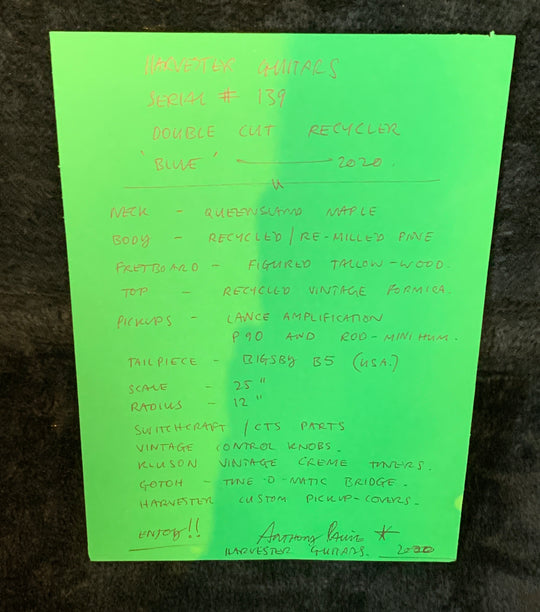 HARVESTER GUITARS
SERIAL # 139
DOUBLE CUT RECYCLER
'BLUE' 2020.
NECK - QUEENSLAND MAPLE
BODY - RECYCLED / RE-MILLED PINE
FRETBOARD - FIGURED TALLOW-WOOD.
TOP - RECYCLED VINTAGE FORMICA.
PICKUPS - LANCE AMPLIFICATION
P90 AND ROD-MINI HUM.
TAILPIECE - BIGSBY B5 (USA.)
SCALE - 25"
RADIUS - 12"
SWITCHCRAFT / CTS PARTS
VINTAGE CONTROL KNOBS.
KLUSON VINTAGE CREME TUNERS.
GOTOH - TUNE-O-MATIC BRIDGE.
HARVESTER CUSTOM PICKUP-COVERS.
ENJOY!! Anthony
HARVESTER GUITARS. 2020